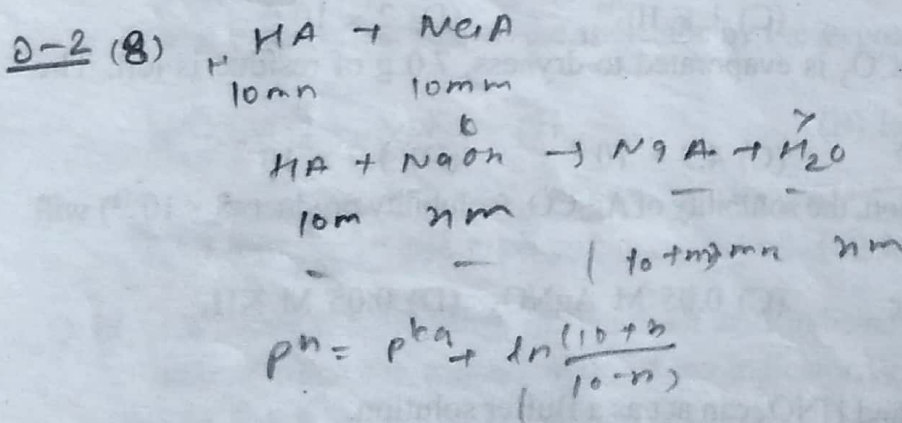 D-2 (8) HA + NaA
10mm 10mm
HA + NaOH → NaA + H₂O
10m xm
- - (10+x)mm xm
pH = pKa + ln (10+x)/(10-x)